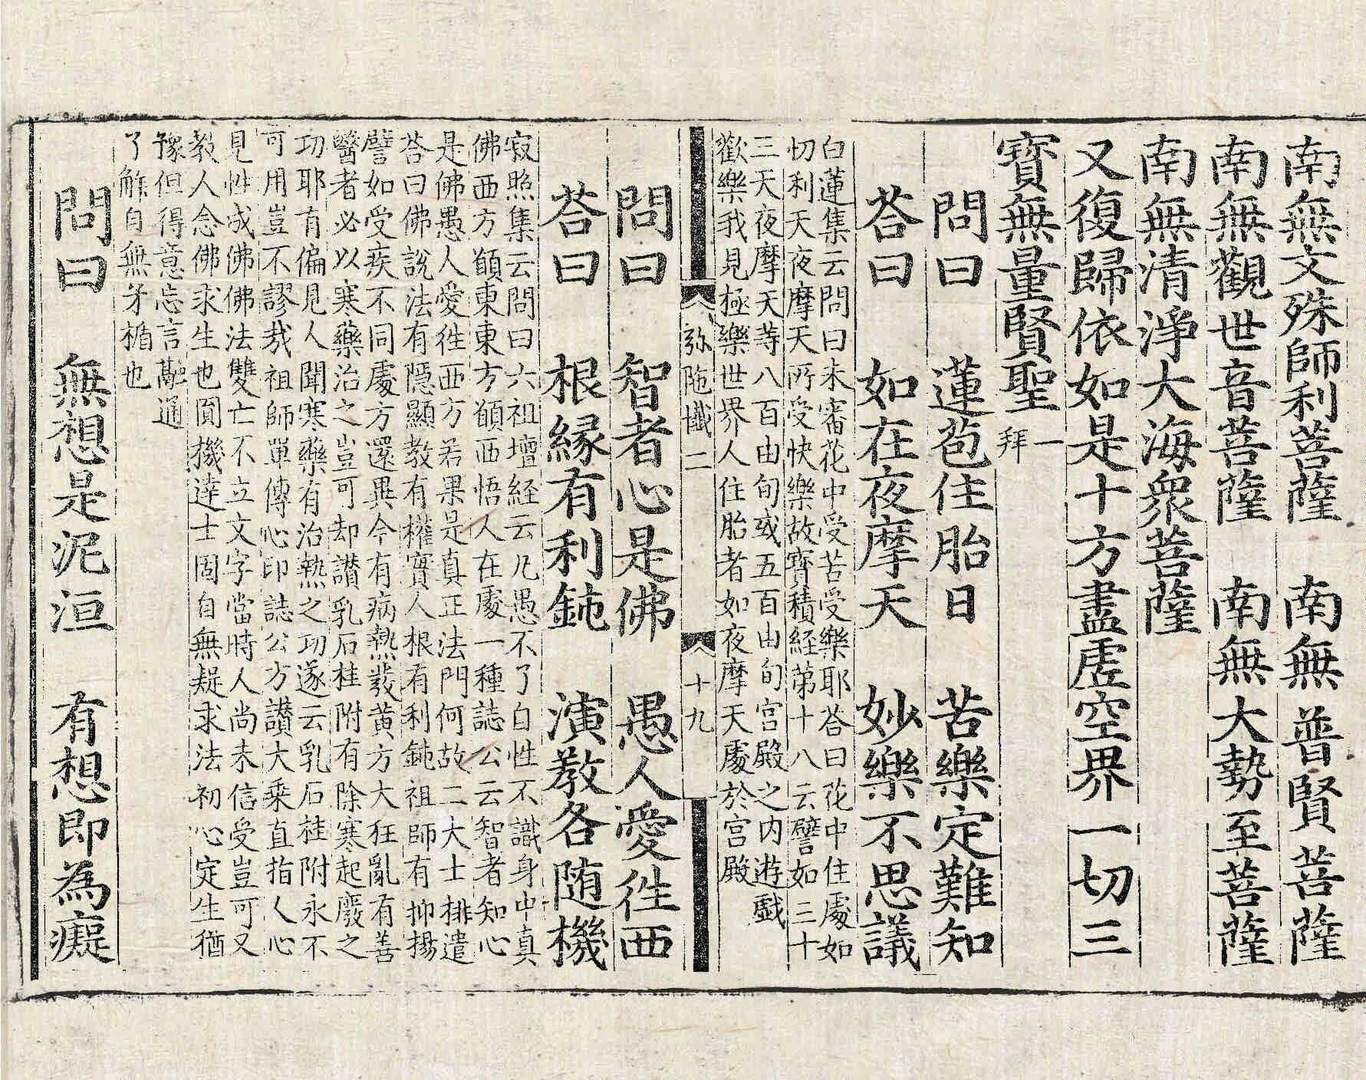 南無文殊師利菩薩　南無普賢菩薩
南無觀世音菩薩　南無大勢至菩薩
南無清淨大海衆菩薩
又復歸依如是十方盡虛空界一切三
寶無量賢聖一拜
問曰　蓮苞住胎日　苦樂定難知
荅曰　如在夜摩天　妙樂不思議
白蓮集云問曰未審花中受苦受樂耶荅曰花中住處如
忉利天夜摩天所受快樂故寶積経第十八云譬如三十
三天夜摩天等八百由旬或五百由旬宮殿之内遊戯
歡樂我見極樂世界人住胎者如夜摩天處於宮殿
弥陁懺二　十九
問曰　智者心是佛　愚人愛徃西
荅曰　根緣有利鈍　演教各随機
寂照集云問曰六祖壇経云凡愚不了自性不識身中真
佛西方頟東東方頟西悟人在處一種誌公云智者知心
是佛愚人愛徃西方若果是真正法門何故二大士排遣
荅曰佛說法有隱顯教有權實人根有利鈍祖師有抑揚
譬如受疾不同處方還異今有病熱裁黄方大狂亂有善
醫者必以寒藥治之豈可却讃乳石桂附有除寒起廢之
功耶有偏見人聞寒藥有治熱之功遂云乳石桂附永不
可用豈不謬哉祖師單傳心印誌公方讃大乗直指人心
見性成佛佛法雙亡不立文字當時人尚未信受豈可又
教人念佛求生也圎機達士固自無疑求法初心定生猶
豫但得意忘言融通
了觧自無矛楯也
問曰　無想是泥洹　有想即為癡